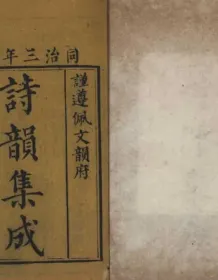 同治三年
謹遵佩文韻府
詩韻集成